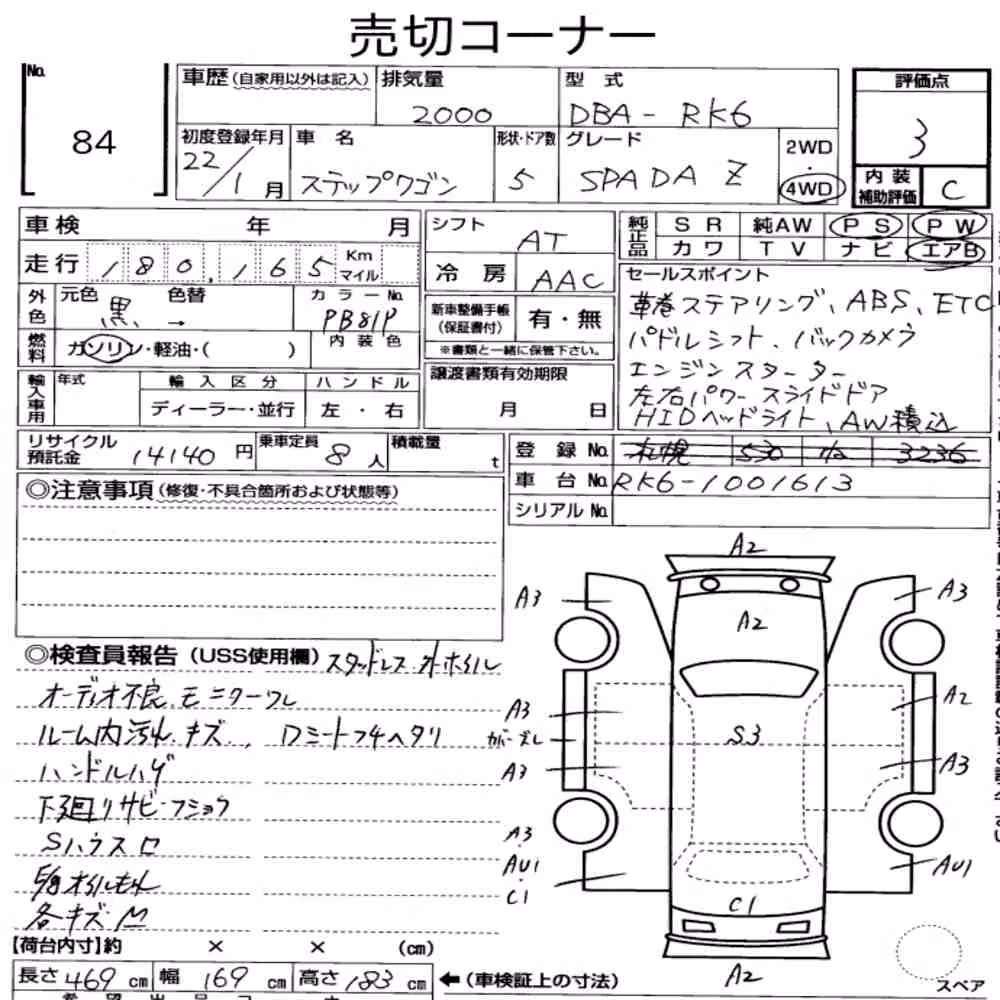 売切コーナー
No. 84
車歴(自家用以外は記入) 排気量 2000 型式 DBA-RK6 評価点 3
初度登録年月 22/1月 車名 ステップワゴン 形状・ドア数 5 グレード SPADA Z 2WD・4WD
内装補助評価 C
車検 年 月 シフト AT 純正品 SR 純AW PS PW
カワ TV ナビ エアB
走行 180,165 Km マイル 冷房 AAC
セールスポイント
革巻ステアリング、ABS、ETC
パドルシフト、バックカメラ
エンジンスターター
左右パワースライドドア
HIDヘッドライト、AW積込
外色 元色 黒 → 色替 カラーNo. PB81P
新車整備手帳(保証書付) 有・無
※書類と一緒に保管下さい。
燃料 ガソリン・軽油・( ) 内装色
輸入車用 年式 輸入区分 ハンドル
ディーラー・並行 左・右
譲渡書類有効期限
月 日
リサイクル預託金 14140円 乗車定員 8人 積載量 t
登録No. 札幌 530 3236
車台No. RK6-1001613
シリアルNo.
◎注意事項(修復・不具合箇所および状態等)
◎検査員報告(USS使用欄) スタッドレス
オーディオ不良 モニターワレ
ルーム内汚れ、キズ、 Dシートフチヘタリ
ハンドルハゲ
下廻りサビ・フショク
Sハウス
各キズ
A2
A3 A3
A2
A3 A2
S3
A3 A3
A3
AU1 AU1
C1
C1
A2
スペア
【荷台内寸】約 × × (cm)
長さ 469 cm 幅 169 cm 高さ 183 cm ←(車検証上の寸法)